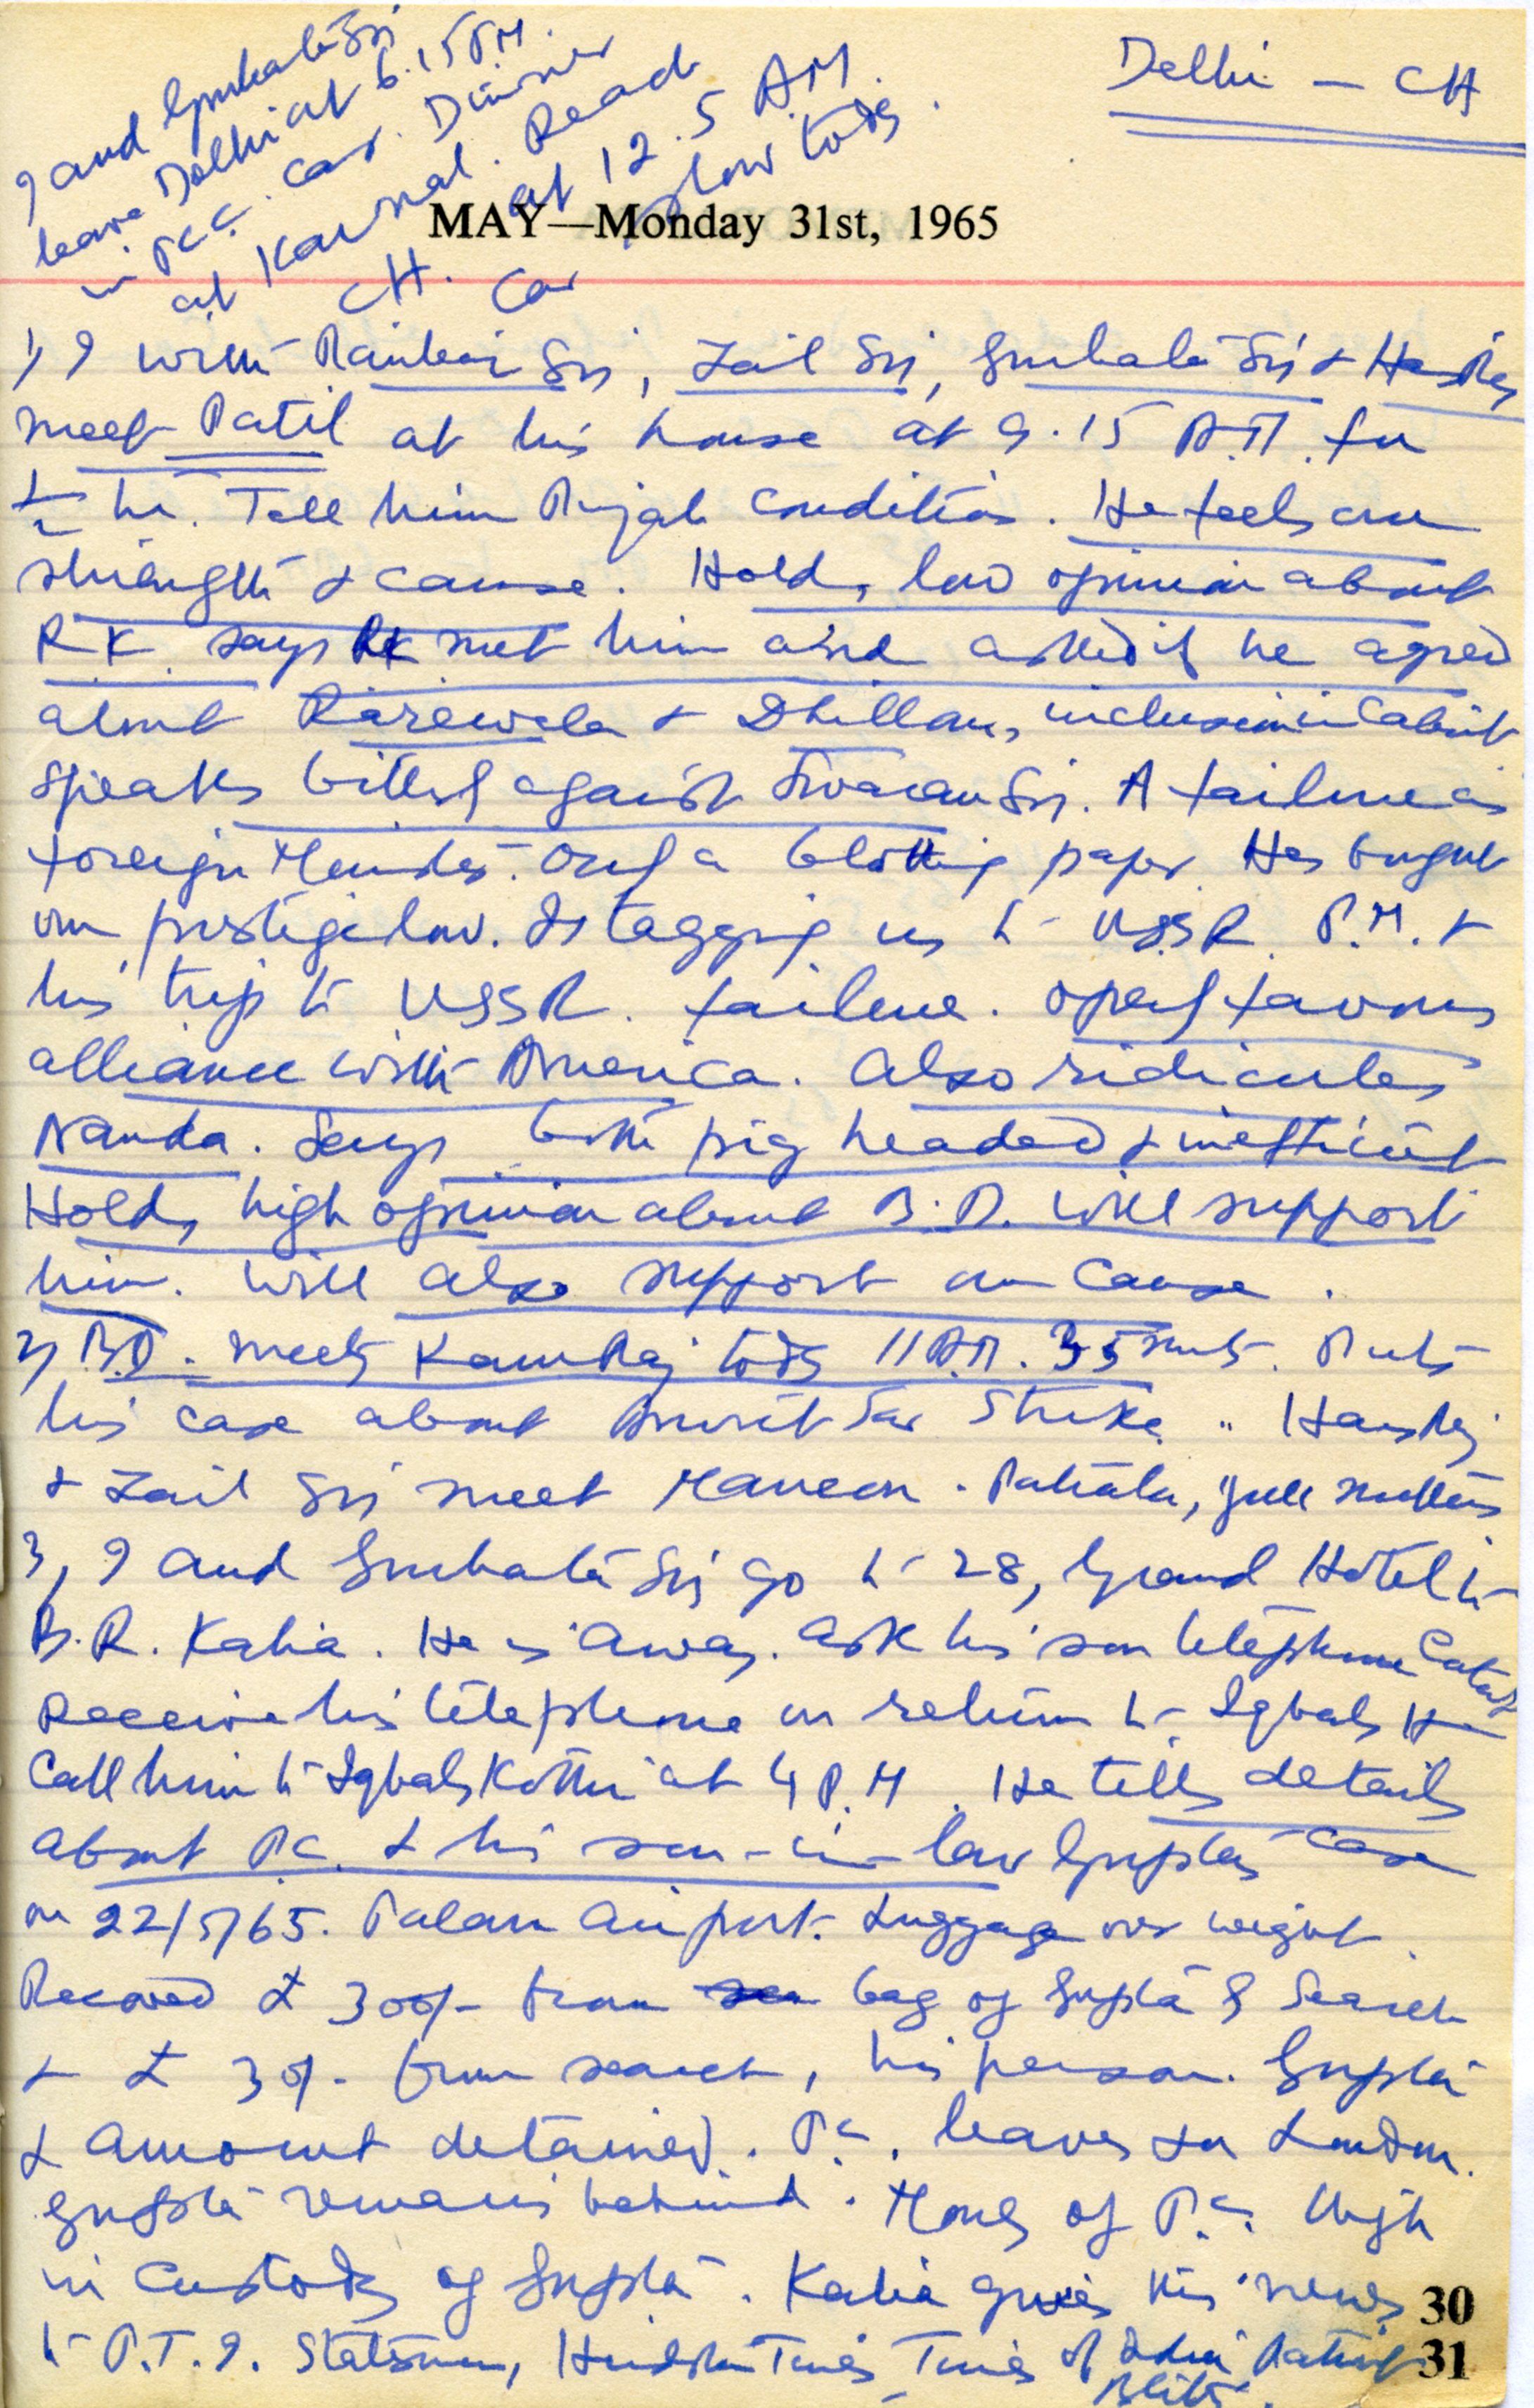 Delhi — CH
I and Gurbakh Sri
leave Delhi at 6.15 P.M.
in P.C.C. Car. Dinner
at Karnal. Reach
CH. at 12.5 A.M.
Car slow today.
MAY—Monday 31st, 1965
1) I with Ranbir Sri, Zail Sri, Gurbakh Sri & HansRaj
meet Patil at his house at 9.15 A.M. for
½ hr. Tell him Punjab condition. He feels our
strength & cause. Holds low opinion about
RK. Says RK met him and asked if he agreed
about Rarewala & Dhillon's inclusion in Cabinet
Speaks bitterly against Swaran Sri. A failure as
foreign Minister. Only a blotting paper. Has brought
our prestige low. Is tagging us to USSR. P.M. &
his trip to USSR. failure. Openly favours
alliance with America. Also ridicules
Nanda. Says both pig headed & inefficient
Holds high opinion about B.D. Will support
him. Will also support our cause.
2) B.D. meets KamRaj today 11 A.M. 35 mts. Puts
his case about Amritsar Strike. HansRaj
& Zail Sri meet Maneon. Patiala,
3) I and Gurbakh Sri go to 28, Grand Hotel to
B.R. Kalia. He is away. Ask his son telephone
Receive his telephone on return to Iqbal's
Call him to Iqbal's Kothi at 4 P.M. He tells details
about P.C. & his son-in-law Gupta's case
on 22/5/65. Palam Airport. Luggage over weight.
Recovered £ 300/- from bag of Gupta & Search
& £ 30/- from search, his person. Gupta
& amount detained. P.C. leaves for London.
Gupta remains behind. Money of P.C. though
in Custody of Gupta. Kalia gives this news
to P.T.I. Statesman, Hindustan Times, Times of India Patriot
Blitz.
30
31